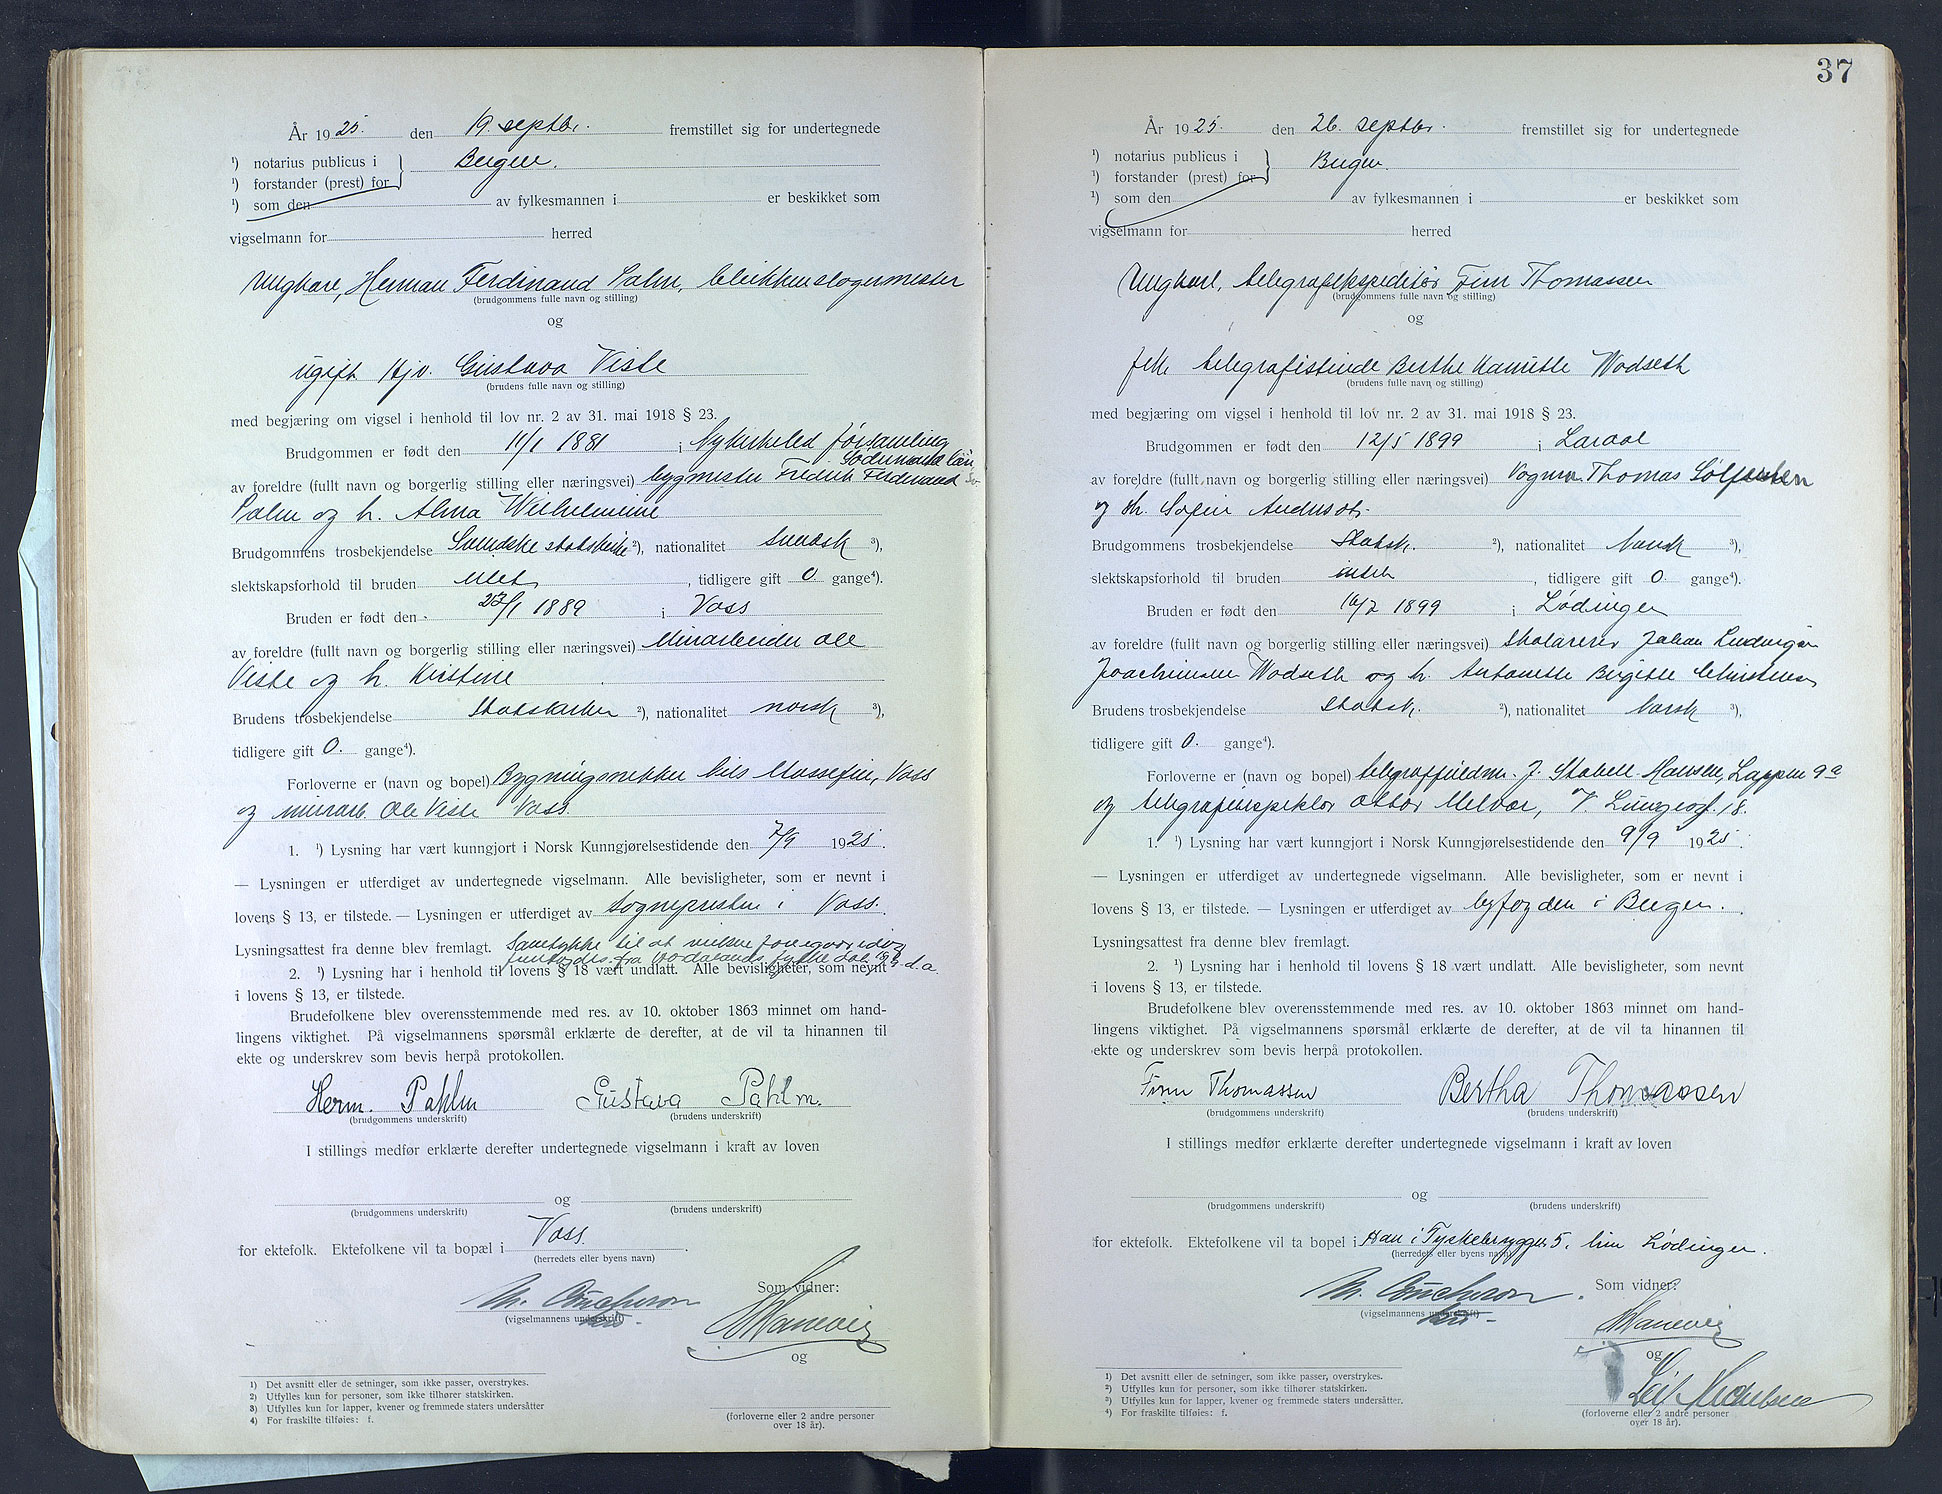 År 1925. den 19. septbr. fremstillet sig for undertegnede
¹) notarius publicus i } Bergen.
¹) forstander (prest) for
¹) som den av fylkesmannen i er beskikket som
vigselmann for herred
Ungkare, Herman Ferdinand Palm, blikkenslagermester
(brudgommens fulle navn og stilling)
og
ugift Hjv. Gustava Viste
(brudens fulle navn og stilling)
med begjæring om vigsel i henhold til lov nr. 2 av 31. mai 1918 § 23.
Brudgommen er født den 11/1 1881 i Nykirkeled församling
Södermanl. län
av foreldre (fullt navn og borgerlig stilling eller næringsvei) bygmester Fredrik Ferdinand
Palm og h. Alma Wilhelmine
Brudgommens trosbekjendelse Svenske statskirke ²), nationalitet svensk ³),
slektskapsforhold til bruden intet, tidligere gift 0 gange⁴).
Bruden er født den 27/1 1889 i Voss
av foreldre (fullt navn og borgerlig stilling eller næringsvei) Murarbeider Ole
Viste og h. Kristine
Brudens trosbekjendelse Statskirken ²), nationalitet norsk ³),
tidligere gift 0. gange⁴).
Forloverne er (navn og bopel) Bygningsnekker Nils Mossefin, Voss
og murarb. Ole Viste Voss.
1. ¹) Lysning har vært kunngjort i Norsk Kunngjørelsestidende den 7/9 1925.
— Lysningen er utferdiget av undertegnede vigselmann. Alle bevisligheter, som er nevnt i
lovens § 13, er tilstede. — Lysningen er utferdiget av Sognepresten i Voss.
Lysningsattest fra denne blev fremlagt. Samtykke til at vielse foregaar
fra Hordalands fylke d.a.
2. ¹) Lysning har i henhold til lovens § 18 vært undlatt. Alle bevisligheter, som nevnt
i lovens § 13, er tilstede.
Brudefolkene blev overensstemmende med res. av 10. oktober 1863 minnet om hand-
lingens viktighet. På vigselmannens spørsmål erklærte de derefter, at de vil ta hinannen til
ekte og underskrev som bevis herpå protokollen.
Herm. Pahlm Gustava Pahlm.
(brudgommens underskrift) (brudens underskrift)
I stillings medfør erklærte derefter undertegnede vigselmann i kraft av loven
og
(brudgommens underskrift) (brudens underskrift)
for ektefolk. Ektefolkene vil ta bopæl i Voss.
(herredets eller byens navn)
Som vidner:
(vigselmannens underskrift)
og
¹) Det avsnitt eller de setninger, som ikke passer, overstrykes.
²) Utfylles kun for personer, som ikke tilhører statskirken.
³) Utfylles kun for lapper, kvener og fremmede staters undersåtter
⁴) For fraskilte tilføies: f.
(forloverne eller 2 andre personer
over 18 år).
37
År 1925. den 26. septbr. fremstillet sig for undertegnede
¹) notarius publicus i } Bergen.
¹) forstander (prest) for
¹) som den av fylkesmannen i er beskikket som
vigselmann for herred
Ungkarl, telegrafekspeditør Finn Thomassen
(brudgommens fulle navn og stilling)
og
frk. telegrafistinde Berthe Kamille Wodseth
(brudens fulle navn og stilling)
med begjæring om vigsel i henhold til lov nr. 2 av 31. mai 1918 § 23.
Brudgommen er født den 12/5 1899 i
av foreldre (fullt navn og borgerlig stilling eller næringsvei) Vognm. Thomas
og h. Sofie
Brudgommens trosbekjendelse Statsk. ²), nationalitet norsk ³),
slektskapsforhold til bruden intet, tidligere gift 0. gange⁴).
Bruden er født den 16/7 1899 i Lødingen
av foreldre (fullt navn og borgerlig stilling eller næringsvei) Johan Ludvigsen
Joachimsen Wodseth og h. Antonette Birgitte Christensen
Brudens trosbekjendelse Statsk. ²), nationalitet norsk ³),
tidligere gift 0. gange⁴).
Forloverne er (navn og bopel) J. Stabell Hansen, Lappen 9a
og telegrafinspektør Ottar Melvær, V. 18.
1. ¹) Lysning har vært kunngjort i Norsk Kunngjørelsestidende den 9/9 1925.
— Lysningen er utferdiget av undertegnede vigselmann. Alle bevisligheter, som er nevnt i
lovens § 13, er tilstede. — Lysningen er utferdiget av byfogden i Bergen.
Lysningsattest fra denne blev fremlagt.
2. ¹) Lysning har i henhold til lovens § 18 vært undlatt. Alle bevisligheter, som nevnt
i lovens § 13, er tilstede.
Brudefolkene blev overensstemmende med res. av 10. oktober 1863 minnet om hand-
lingens viktighet. På vigselmannens spørsmål erklærte de derefter, at de vil ta hinannen til
ekte og underskrev som bevis herpå protokollen.
Finn Thomassen Bertha Thomassen
(brudgommens underskrift) (brudens underskrift)
I stillings medfør erklærte derefter undertegnede vigselmann i kraft av loven
og
(brudgommens underskrift) (brudens underskrift)
for ektefolk. Ektefolkene vil ta bopel i Han i Tyskebryggen 5, hun Lødingen.
(herredets eller byens navn)
Som vidner:
(vigselmannens underskrift)
og
¹) Det avsnitt eller de setninger, som ikke passer, overstrykes.
²) Utfylles kun for personer, som ikke tilhører statskirken.
³) Utfylles kun for lapper, kvener og fremmede staters undersåtter.
⁴) For fraskilte tilføies: f.
(forloverne eller 2 andre personer
over 18 år).